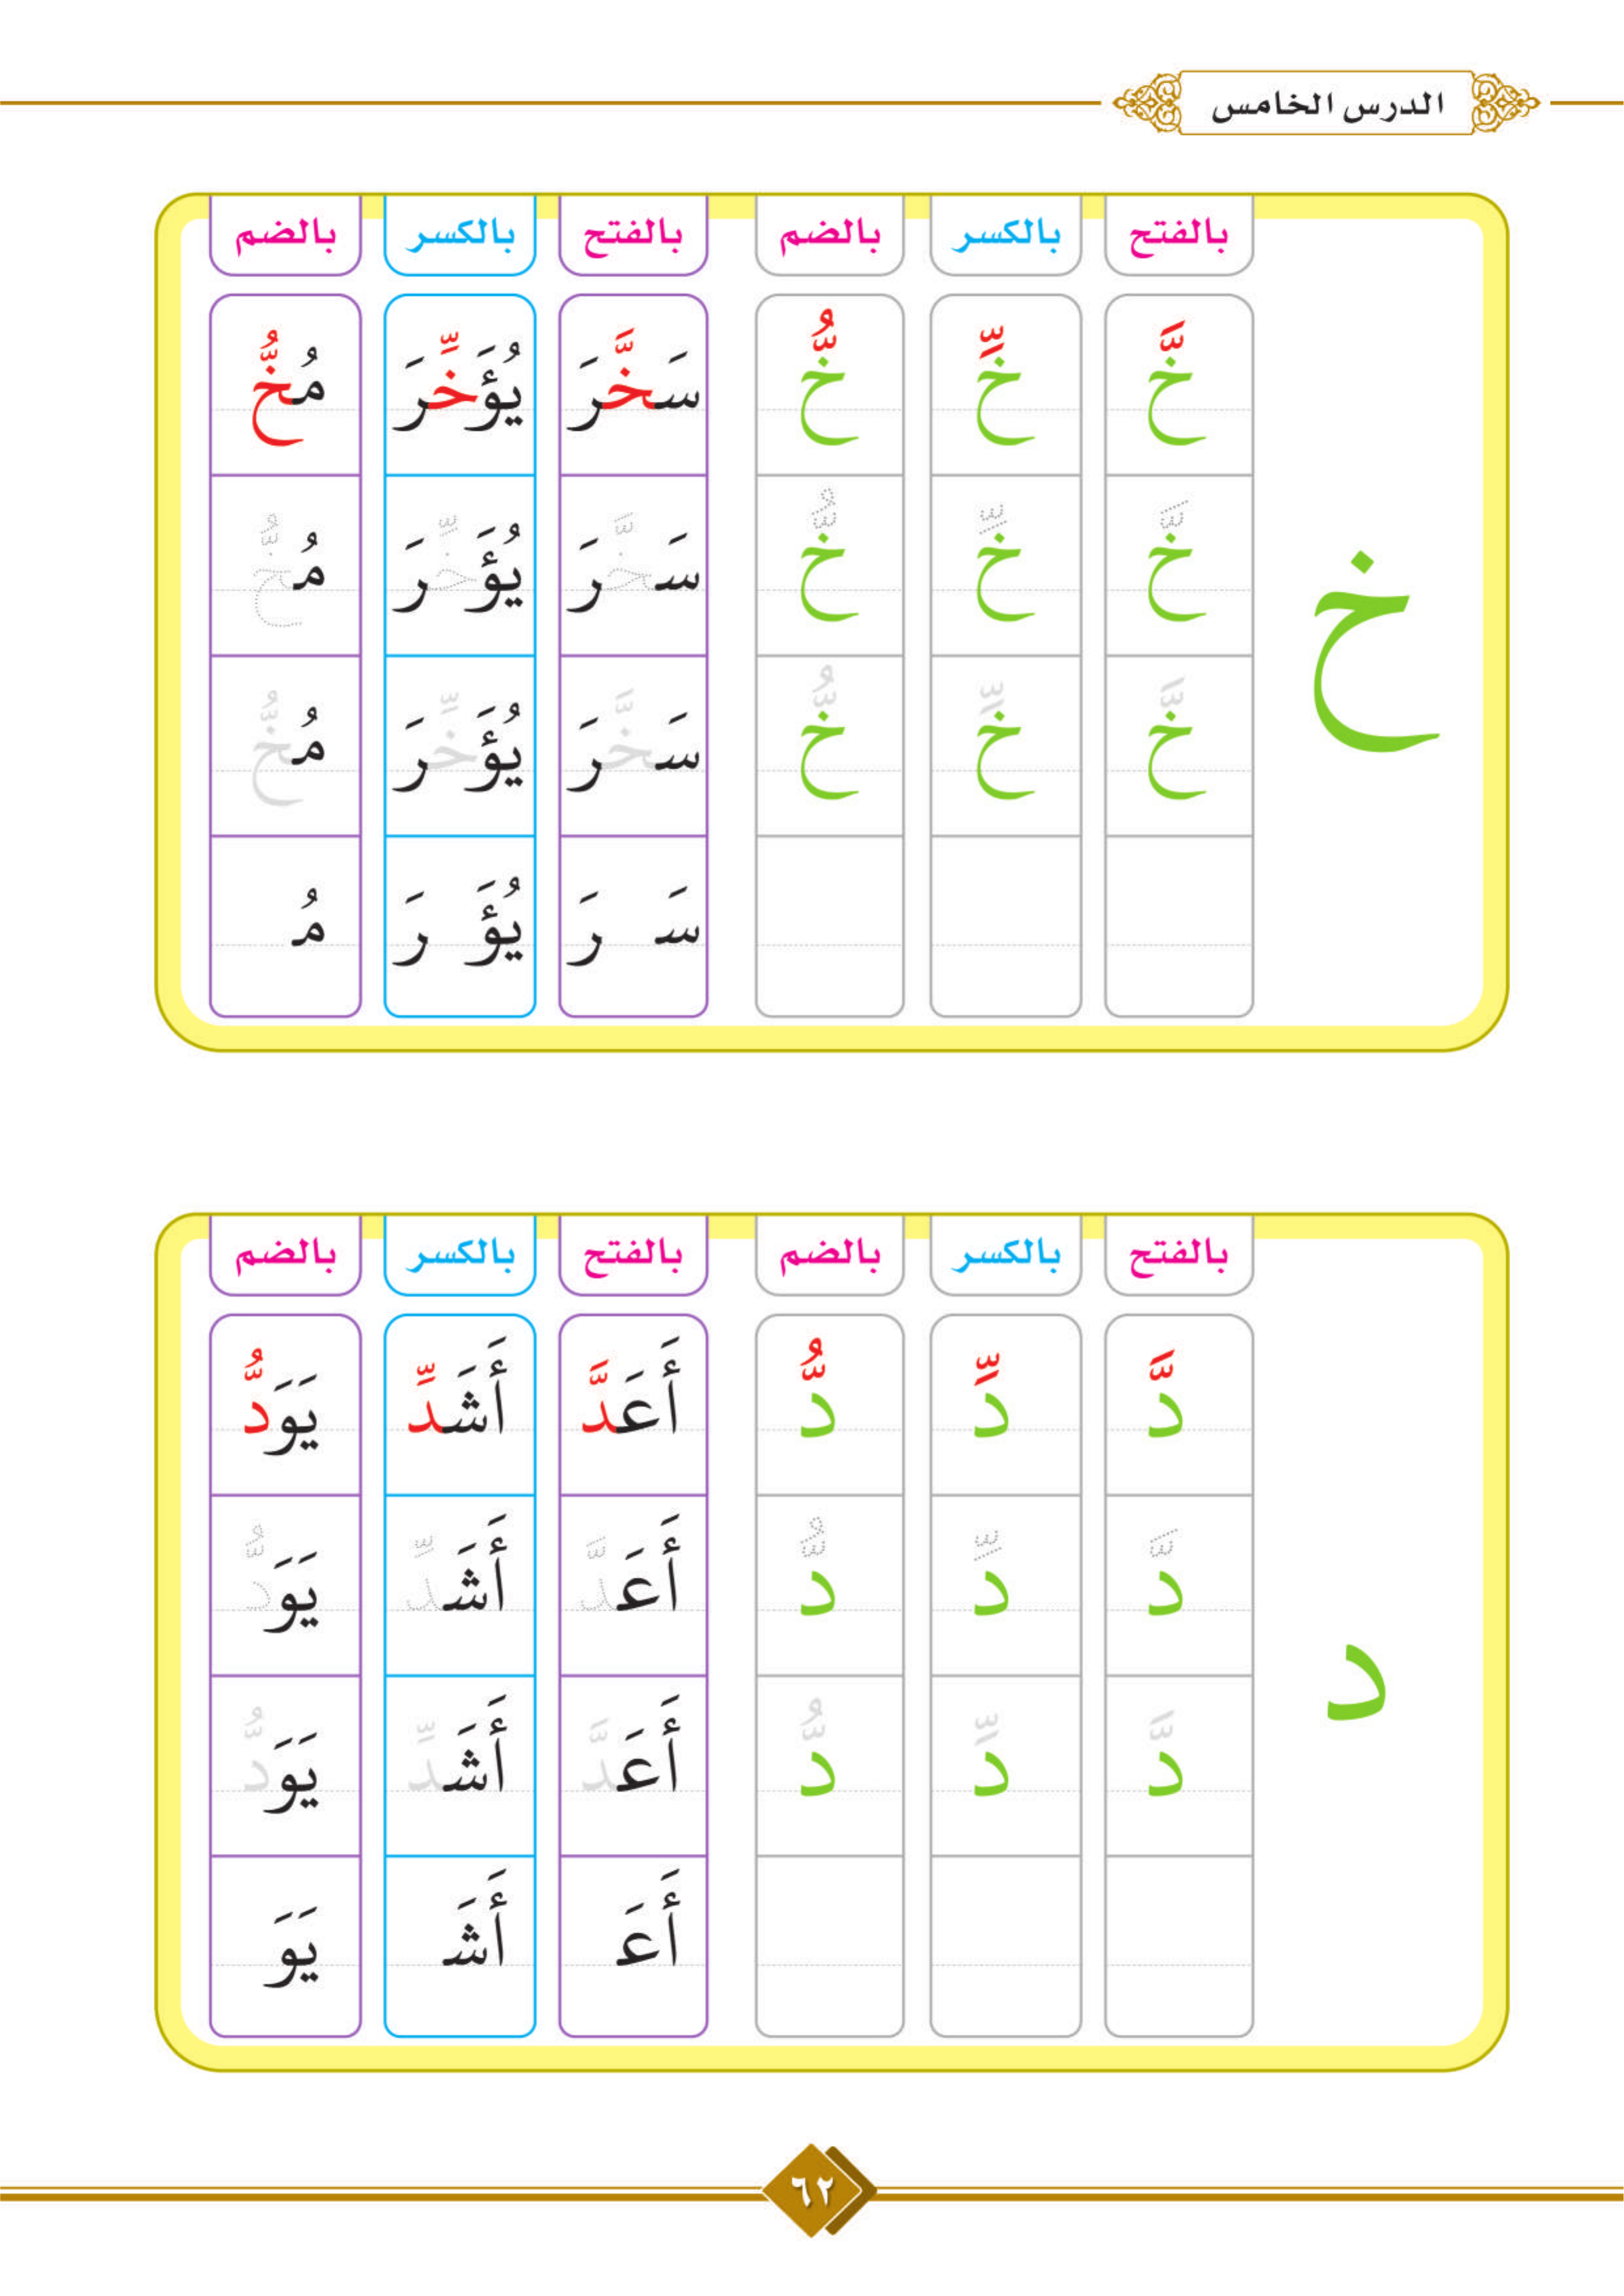 الدرس الخامس
بالفتح بالكسر بالضم بالفتح بالكسر بالضم
خَّ خِّ خُّ سَخَّرَ يُؤَخِّرَ مُخُّ
خَّ خِّ خُّ سَخَّرَ يُؤَخِّرَ مُخُّ
خ
خَّ خِّ خُّ سَخَّرَ يُؤَخِّرَ مُخُّ
سَـ رَ يُؤَ رَ مُـ
بالفتح بالكسر بالضم بالفتح بالكسر بالضم
دَّ دِّ دُّ أَعَدَّ أَشَدِّ يَوَدُّ
دَّ دِّ دُّ أَعَدَّ أَشَدِّ يَوَدُّ
د
دَّ دِّ دُّ أَعَدَّ أَشَدِّ يَوَدُّ
أَعَـ أَشَـ يَوَ
٦٢